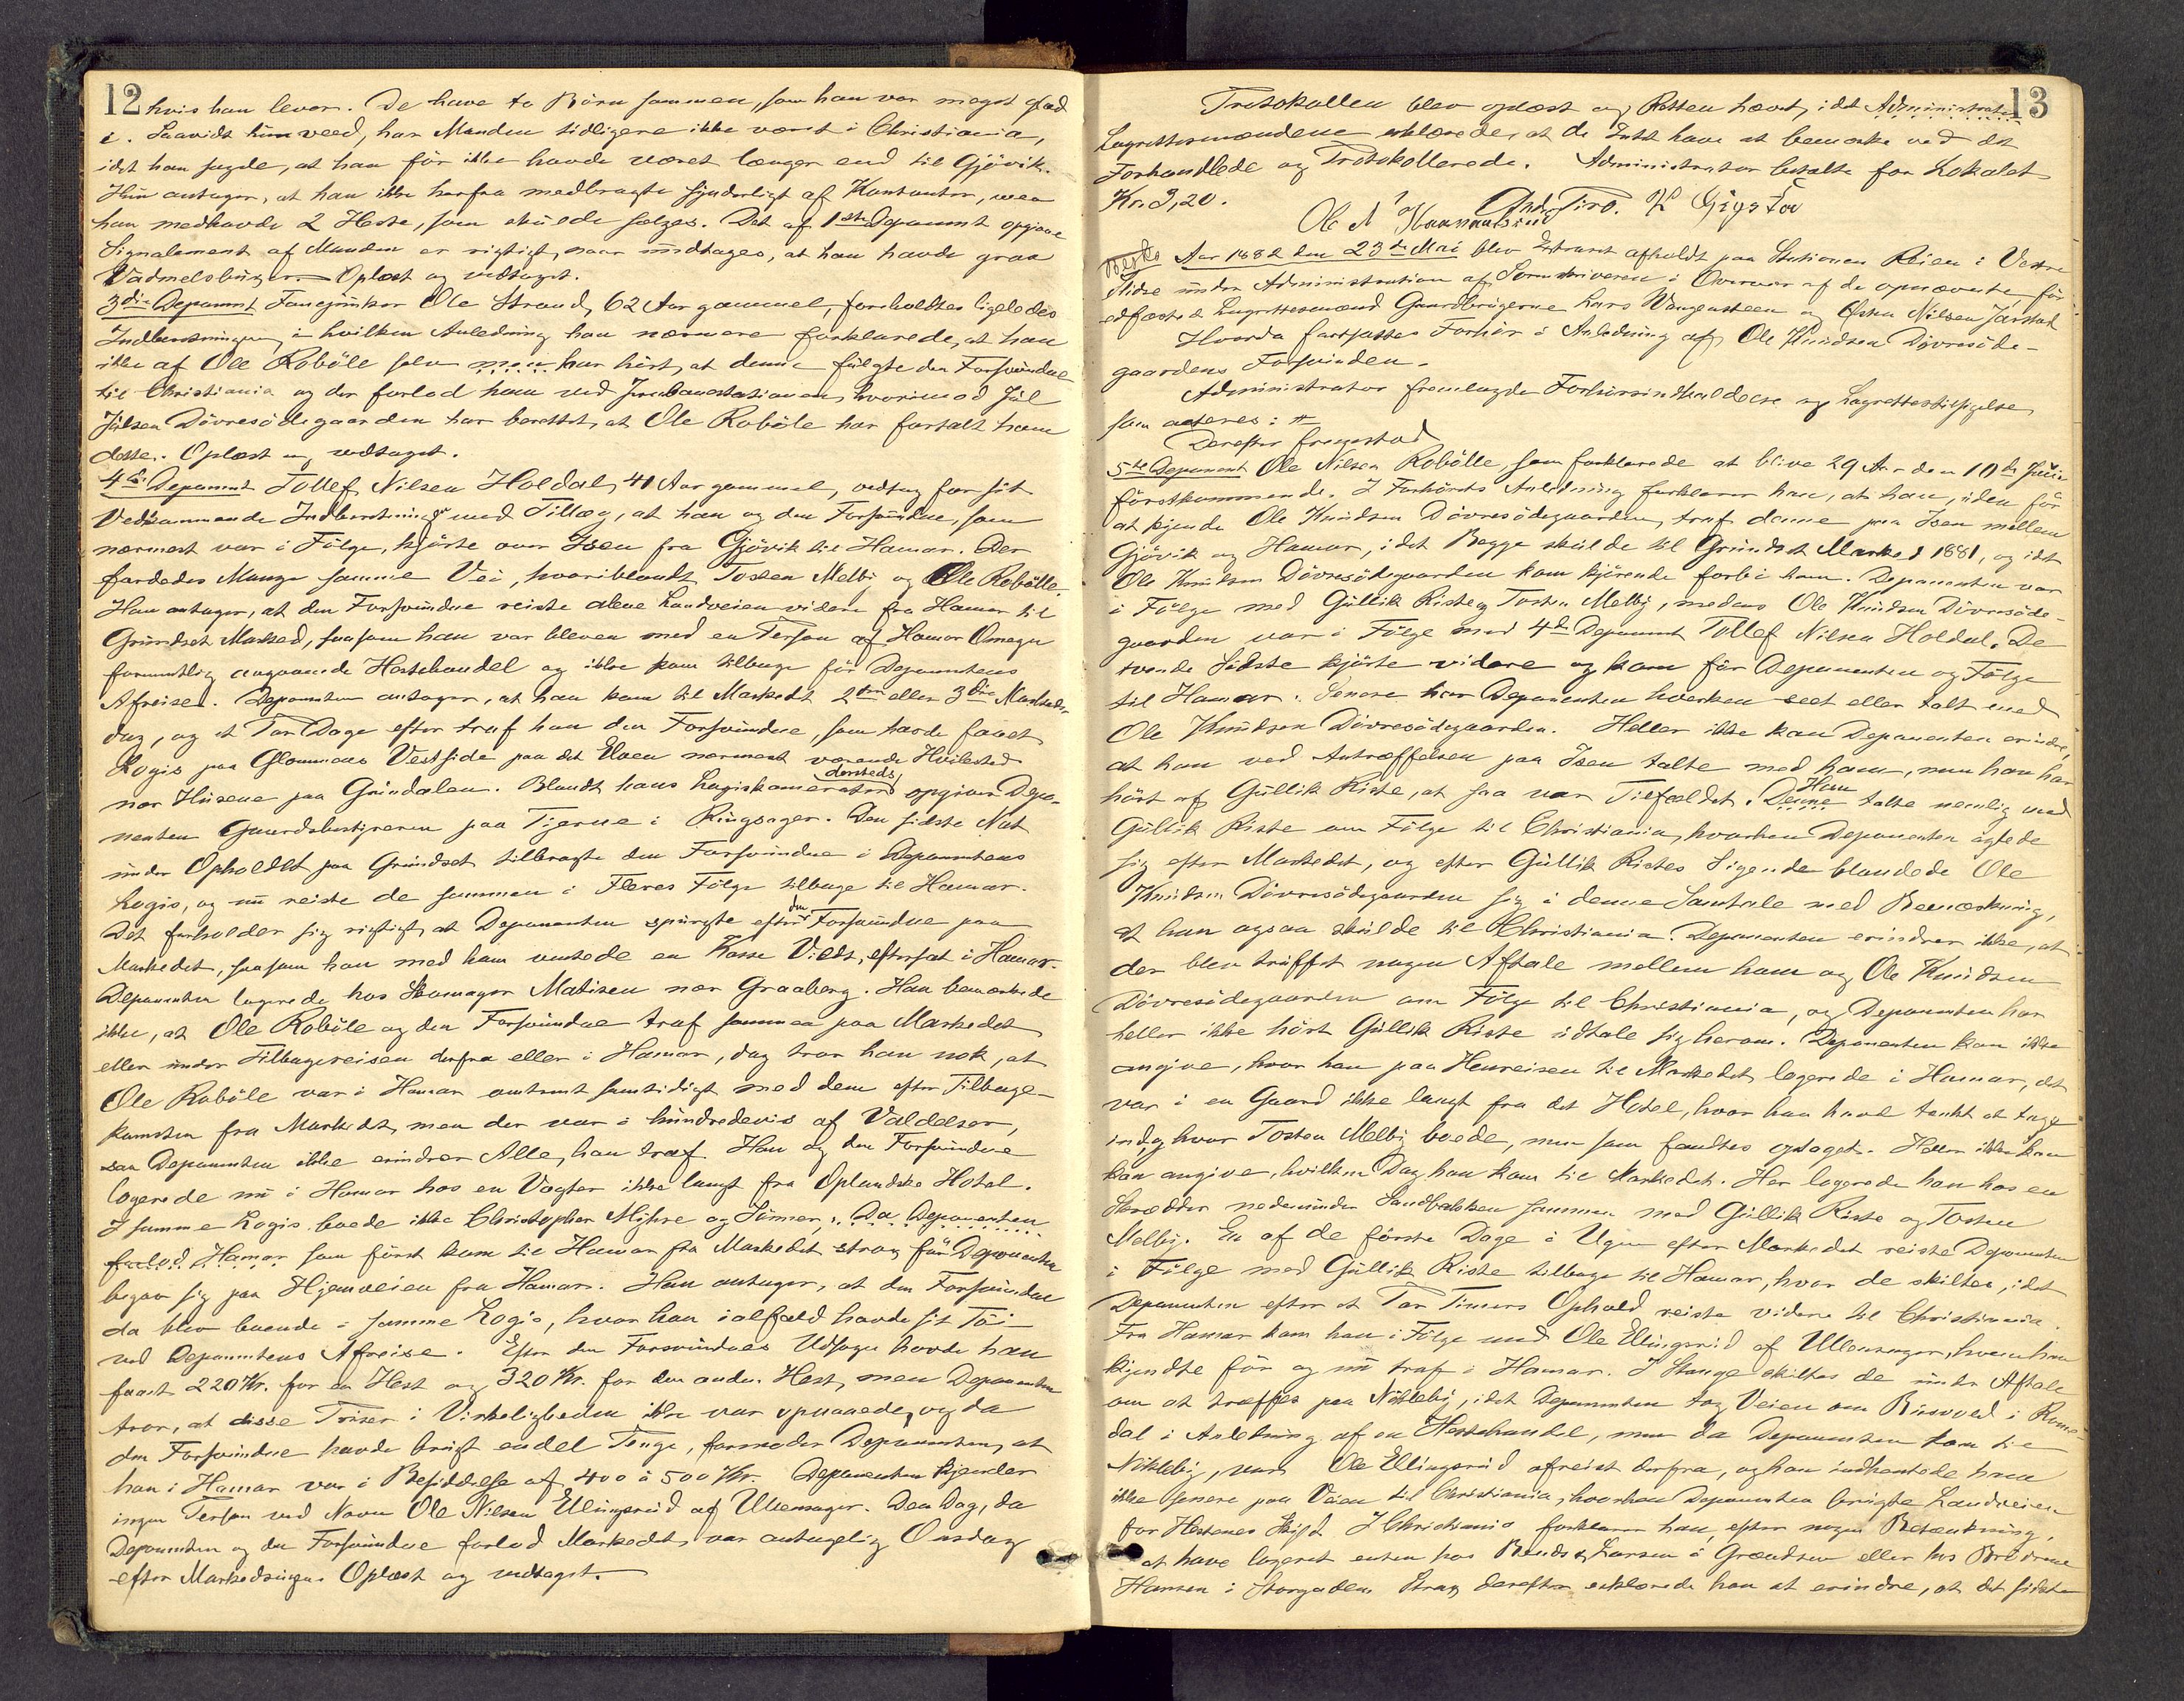 12
hvis han lever. De have to Börn sammen, som han var meget glad
i. Saavidt hun veed, har Manden tidligere ikke været i Christiania,
idet han sagde, at han för ikke havde været længer end til Gjövik.
Hun antager, at han ikke herfra medbragte synderligt af Kontanter, men
han medhavde 2 Heste, som skulde sælges. Det af 1ste Deponent opgivne
Signalement af Manden er rigtigt, naar undtages, at han havde graa
Vadmelsbuxer. Oplæst og vedtaget.
3die Deponent Fanejunker Ole Strand, 62 Aar gammel, foreholdtes ligeledes
Indberetningen, i hvilken Anledning han nærmere forklarede, at han
ikke af Ole Roböle selv men har hört, at denne fulgte den Forsvundne
til Christiania og der forlod ham ved Jernbanestationen, hvorimod Jul
Julsen Dövresödegaarden har berettet, at Ole Roböle har fortalt ham
dette. Oplæst og vedtaget.
4de Deponent Tollef Nilsen Holdal, 41 Aar gammel, vedtog for sit
Vedkommende Indberetningen med Tillæg, at han og den Forsvundne, som
nærmest var i Fölge, kjörte over Isen fra Gjövik til Hamar. Der
færdedes Mange samme Vei, hvoriblandt Tosten Melby og Ole Robölle.
Han antager, at den Forsvundne reiste alene Landveien videre fra Hamar til
Grundset Marked, saasom han var bleven med en Person af Hamar Omegn
formentlig angaaende Hestehandel og ikke kom tilbage för Deponentens
Afreise. Deponenten antager, at han kom til Markedt 2den eller 3die Markeds-
dag, og et Par Dage efter traf han den Forsvundne, som havde faaet
Logis paa Glommens Vestside paa det Elven nærmest værende Hvilested
nær Husene paa Grindalen. Blandt hans Logiskamerater dersteds opgiver Depo-
nenten Gaardsbestyreren paa Tjerne i Ringsager. Den sidste Nat
under Opholdet paa Grundset tilbragte den Forsvundne i Deponentens
Logis, og nu reiste de sammen i Fleres Fölge tilbage til Hamar.
Det forholder sig rigtigt, at Deponenten spurgte efter den Forsvundne paa
Markedet, saasom han med ham ventede en Kasse Vildt, eftersat i Hamar.
Deponenten logerede hos Skomager Matisen nær Graaberg. Han bemærkede
ikke, at Ole Roböle og den Forsvundne traf sammen paa Markedet
eller under Tilbagereisen derfra eller i Hamar, dog tror han nok, at
Ole Roböle var i Hamar omtrent samtidigt med dem efter Tilbage-
komsten fra Markedet, men der var i hundredevis af Valdølser,
saa Deponenten ikke erindrer Alle, han traf. Han og den Forsvundne
logerede nu i Hamar hos en Vogter ikke langt fra Oplandske Hotel.
I samme Logis boede ikke Christopher Myhre og Sönner. Da Deponenten
forlod Hamar som först kom til Hamar fra Markedet strax för Deponenten
begav sig paa Hjemveien fra Hamar. Han antager, at den Forsvundne
da blev boende i samme Logis, hvor han ialfald havde sit Töi
ved Deponentens Afreise. Efter den Forsvundnes Udsagn havde han
faaet 220 Kr. for en Hest og 320 Kr. for den anden Hest, men Deponenten
tror, at disse Priser i Virkeligheden ikke var opnaaede, og da
den Forsvundne havde brugt endel Penge, formoder Deponenten, at
han i Hamar var i Besiddelse af 400 à 500 Kr. Deponenten kjender
ingen Person ved Navn Ole Nilsen Ellingsrud af Ullensager. Den Dag, da
Deponenten og den Forsvundne forlod Markedet, var antagelig Onsdag
efter Markedsugen. Oplæst og vedtaget.
13
Protokollen blev oplæst og Retten hævet, idet Administrator
Lagrettesmændene erklærede, at de Intet have at bemærke ved det
Forhandlede og Protokollerede. Administrator betalte for Lokalet
Kr. 3,20.
Aar 1882 den 23de Mai blev Extraret afholdt paa Stationen Reien i Vestre
Slidre under Administration af Sorenskriveren i Overvær af de opnævnte, för
edfæstede Lagrettesmænd Gaardbrugerne Lars Wangensteen og Östen Nilsen Jarstad.
Hvorda fortsattes Forhör i Anledning af Ole Knudsen Dövresöde-
gaardens Forsvinden.
Administrator fremlagde Forhörsindkaldelse og Lagrettestilsigelse,
som acteres:
Derefter fremstod
5te Deponent Ole Nilsen Robölle, som forklarede at blive 29 Aar den 10de Juli
förstkommende. I Forhörets Anledning forklarer han, at han, uden för
at kjende Ole Knudsen Dövresödegaarden, traf denne paa Isen mellem
Gjövik og Hamar, idet Begge skulde til Grundset Marked 1881, og idet
Ole Knudsen Dövresödegaarden kom kjörende forbi ham. Deponenten var
i Fölge med Gullik Riste og Tosten Melby, medens Ole Knudsen Dövresöde-
gaarden var i Fölge med 4de Deponent Tollef Nilsen Holdal. De
tvende Sidste kjörte videre og kom för Deponenten og Fölge
til Hamar. Senere har Deponenten hverken seet eller talt med
Ole Knudsen Dövresödegaarden. Heller ikke kan Deponenten erindre,
at han ved Antræffelsen paa Isen talte med ham, men han har
hört af Gullik Riste, at saa var Tilfældet. Denne Han talte nemlig med
Gullik Riste om Fölge til Christiania, hvorhen Deponenten agtede
sig efter Markedet, og efter Gullik Ristes Sigende blandede Ole
Knudsen Dövresödegaarden sig i denne Samtale med Bemærkning,
at han ogsaa skulde til Christiania. Deponenten erindrer ikke, at
der blev truffet nogen Aftale mellem ham og Ole Knudsen
Dövresödegaarden om Fölge til Christiania, og Deponenten har
heller ikke hört Gullik Riste udtale sig herom. Deponenten kan ikke
angive, hvor han paa Henreisen til Markedet logerede i Hamar, det
var i en Gaard ikke langt fra det Hotel, hvor han havde tænkt at tage
ind, og hvor Tosten Melby boede, men som fandtes optaget. Heller ikke kan
han angive, hvilken Dag han kom til Markedet. Her logerede han hos en
Skrædder nedenunder Sandbakken sammen med Gullik Riste og Tosten
Melby. En af de förste Dage i Ugen efter Markedet reiste Deponenten
i Fölge med Gullik Riste tilbage til Hamar, hvor de skiltes, idet
Deponenten efter et Par Timers Ophold reiste videre til Christiania.
Fra Hamar kom han i Fölge med Ole Ellingsrud af Ullensager, hvem han
kjendte för og nu traf i Hamar. I Stange skiltes de under Aftale
om at træffes paa Nökleby, idet Deponenten tog Veien om Risvoed i Rome-
dal i Anledning af en Hestehandel, men da Deponenten kom til
Nökleby, var Ole Ellingsrud afreist derfra, og han indhentede ham
ikke senere paa Veien til Christiania, hvorhen Deponenten brugte Landveien
for Hestenes Skyld. I Christiania forklarer han, efter nogen Betænkning,
at have logeret enten hos Larsen i Grændsen eller hos Brödrene
Hansen i Storgaden. Strax derefter erklærede han at erindre, at det sidste